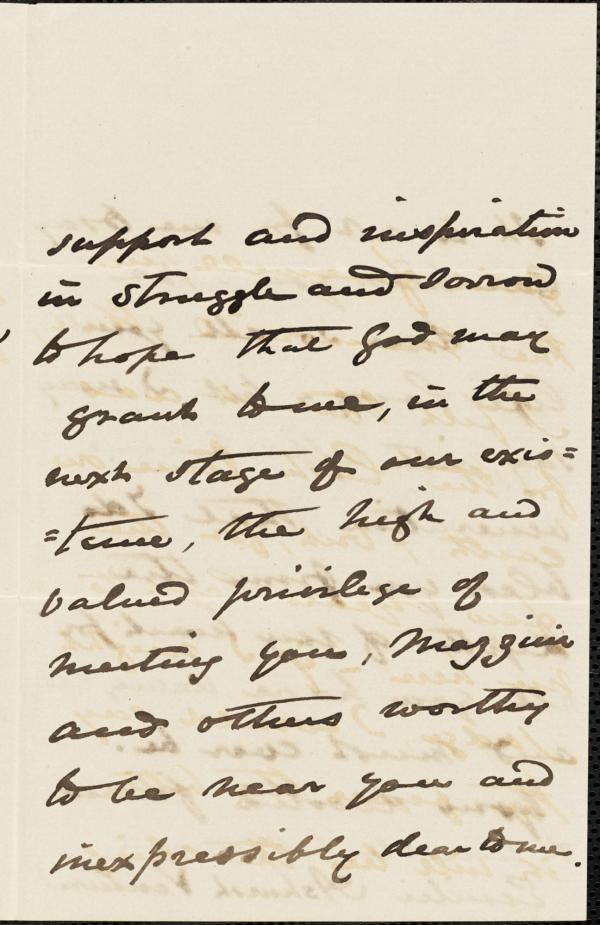 support and inspiration
in struggle and sorrow
to hope that God may
grant to me, in the
next stage of our exis=
=tence, the high and
valued privilege of
meeting you, Mazzini
and others worthy
to be near you and
inexpressibly dear to me.